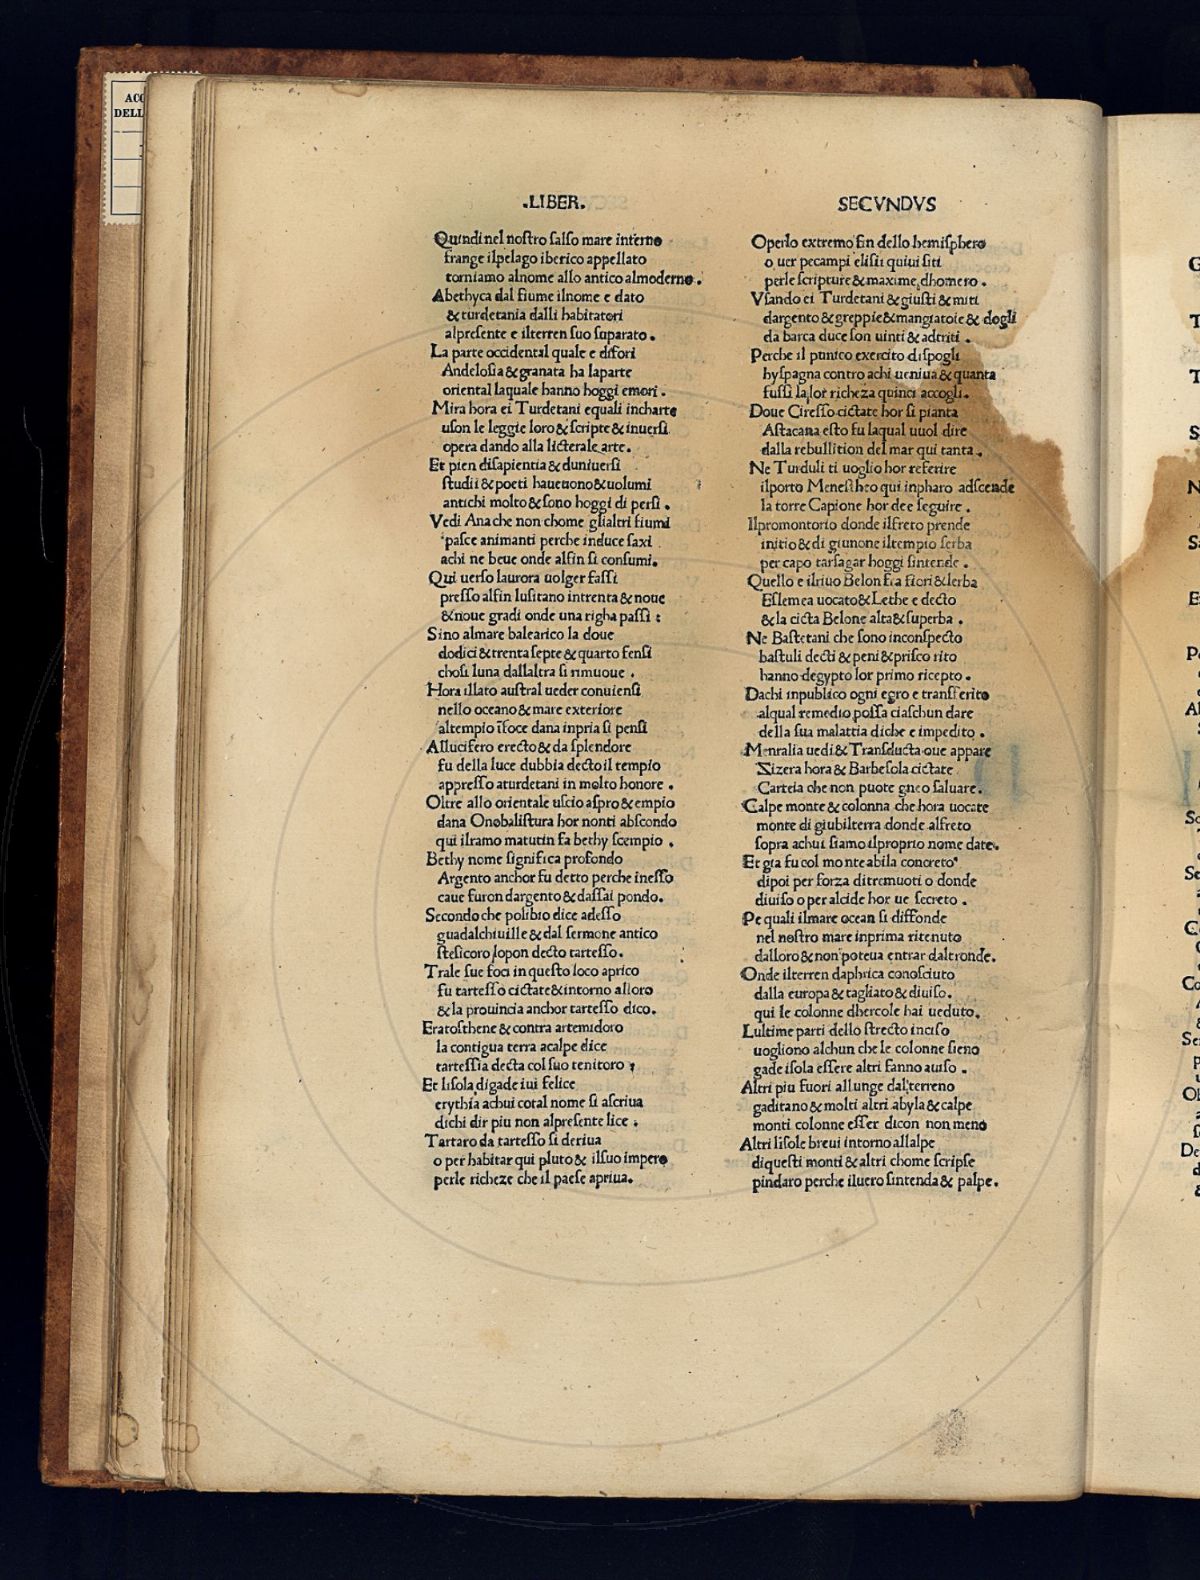 .LIBER.
Quindi nel nostro salso mare interno
frange ilpelago iberico appellato
torniamo alnome allo antico almoderno.
Abethyca dal fiume ilnome e dato
& turdetania dalli habitatori
alpresente e ilterren suo suparato.
La parte occidental quale e difori
Andelosia & granata ha laparte
oriental laquale hanno hoggi emori.
Mira hora ei Turdetani equali incharte
uson le leggie loro & scripte & inuersi
opera dando alla licterale arte.
Et pien disapientia & duniuersi
studii & poeti haueuono & uolumi
antichi molto & sono hoggi di persi.
Vedi Ana che non chome glialtri fiumi
pasce animanti perche induce saxi
achi ne beue onde alfin si consumi.
Qui uerso laurora uolger fassi
presso alfin lusitano intrenta & noue
& noue gradi onde una righa passi :
Sino almare balearico la doue
dodici & trenta septe & quarto sensi
chosi luna dallaltra si rimuoue.
Hora illato austral ueder conuiensi
nello oceano & mare exteriore
altempio īfoce dana inpria si pensi
Allucifero erecto & da splendore
fu della luce dubbia decto il tempio
appresso aturdetani in molto honore.
Oltre allo orientale uscio aspro & empio
dana Onobalistura hor nonti abscondo
qui ilramo matutin fa bethy scempio.
Bethy nome significa profondo
Argento anchor fu detto perche inesso
caue furon dargento & dassai pondo.
Secondo che polibio dice adesso
guadalchiuille & dal sermone antico
stesicoro lopon decto tartesso.
Trale sue foci in questo loco aprico
fu tartesso cictate & intorno alloro
& la prouincia anchor tartesso dico.
Eratosthene & contra artemidoro
la contigua terra acalpe dice
tartessia decta col suo tenitoro ;
Et lisola digade iui felice
erythia achui cotal nome si ascriua
dichi dir piu non alpresente lice :
Tartaro da tartesso si deriua
o per habitar qui pluto & ilsuo impero
perle richeze che il paese apriua.
SECVNDVS
Operlo extremo fin dello hemisphero
o uer pe campi elisii quiui siti
perle scripture & maxime dhomero.
Vsando ei Turdetani & giusti & miti
dargento & greppie & mangiatoie & dogli
da barca duce son uinti & adtriti.
Perche il punico exercito dispogli
hyspagna contro achi ueniua & quanta
fussi la lor richeza quinci accogli.
Doue Ciresso cictate hor si pianta
Astacana esto fu laqual uuol dire
dalla rebullition del mar qui tanta.
Ne Turduli ti uoglio hor referire
ilporto Menestheo qui inpharo adscende
la torre Capione hor dee seguire.
Ilpromontorio donde ilfreto prende
initio & di giunone iltempio serba
per capo tarsagar hoggi sintende.
Quello e ilriuo Belon fra fiori & lerba
Eslemea uocato & Lethe e decto
& la cicta Belone alta & superba.
Ne Bastetani che sono inconspecto
bastuli decti & peni & prisco rito
hanno degypto lor primo ricepto.
Dachi inpublico ogni egro e transferito
alqual remedio possa ciaschun dare
della sua malattia diche e impedito.
Menralia uedi & Transducta oue appare
Zizera hora & Barbesola cictate
Carteia che non puote gneo saluare.
Calpe monte & colonna che hora uocate
monte di giubilterra donde alfreto
sopra achui siamo ilproprio nome date.
Et gia fu col monte abila concreto
dipoi per forza ditremuoti o donde
diuiso o per alcide hor ue secreto.
Pe quali ilmare ocean si diffonde
nel nostro mare inprima ritenuto
dalloro & non poteua entrar daltronde.
Onde ilterren daphrica conosciuto
dalla europa & tagliato & diuiso.
qui le colonne dhercole hai ueduto.
Lultime parti dello strecto inciso
uogliono alchun che le colonne sieno
gade isola essere altri fanno auiso.
Altri piu fuori allunge dal terreno
gaditano & molti altri abyla & calpe
monti colonne esser dicon non meno
Altri lisole breui intorno allalpe
diquesti monti & altri chome scripse
pindaro perche iluero sintenda & palpe.